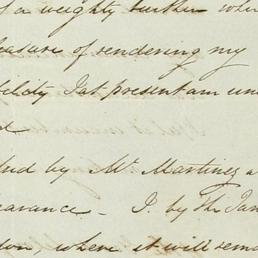 of a weighty burthen when
pleasure of rendering my
felicity I at present am un
d
ded by Mr. Martinez a
earance - I. by the Jan
don, where it will rema